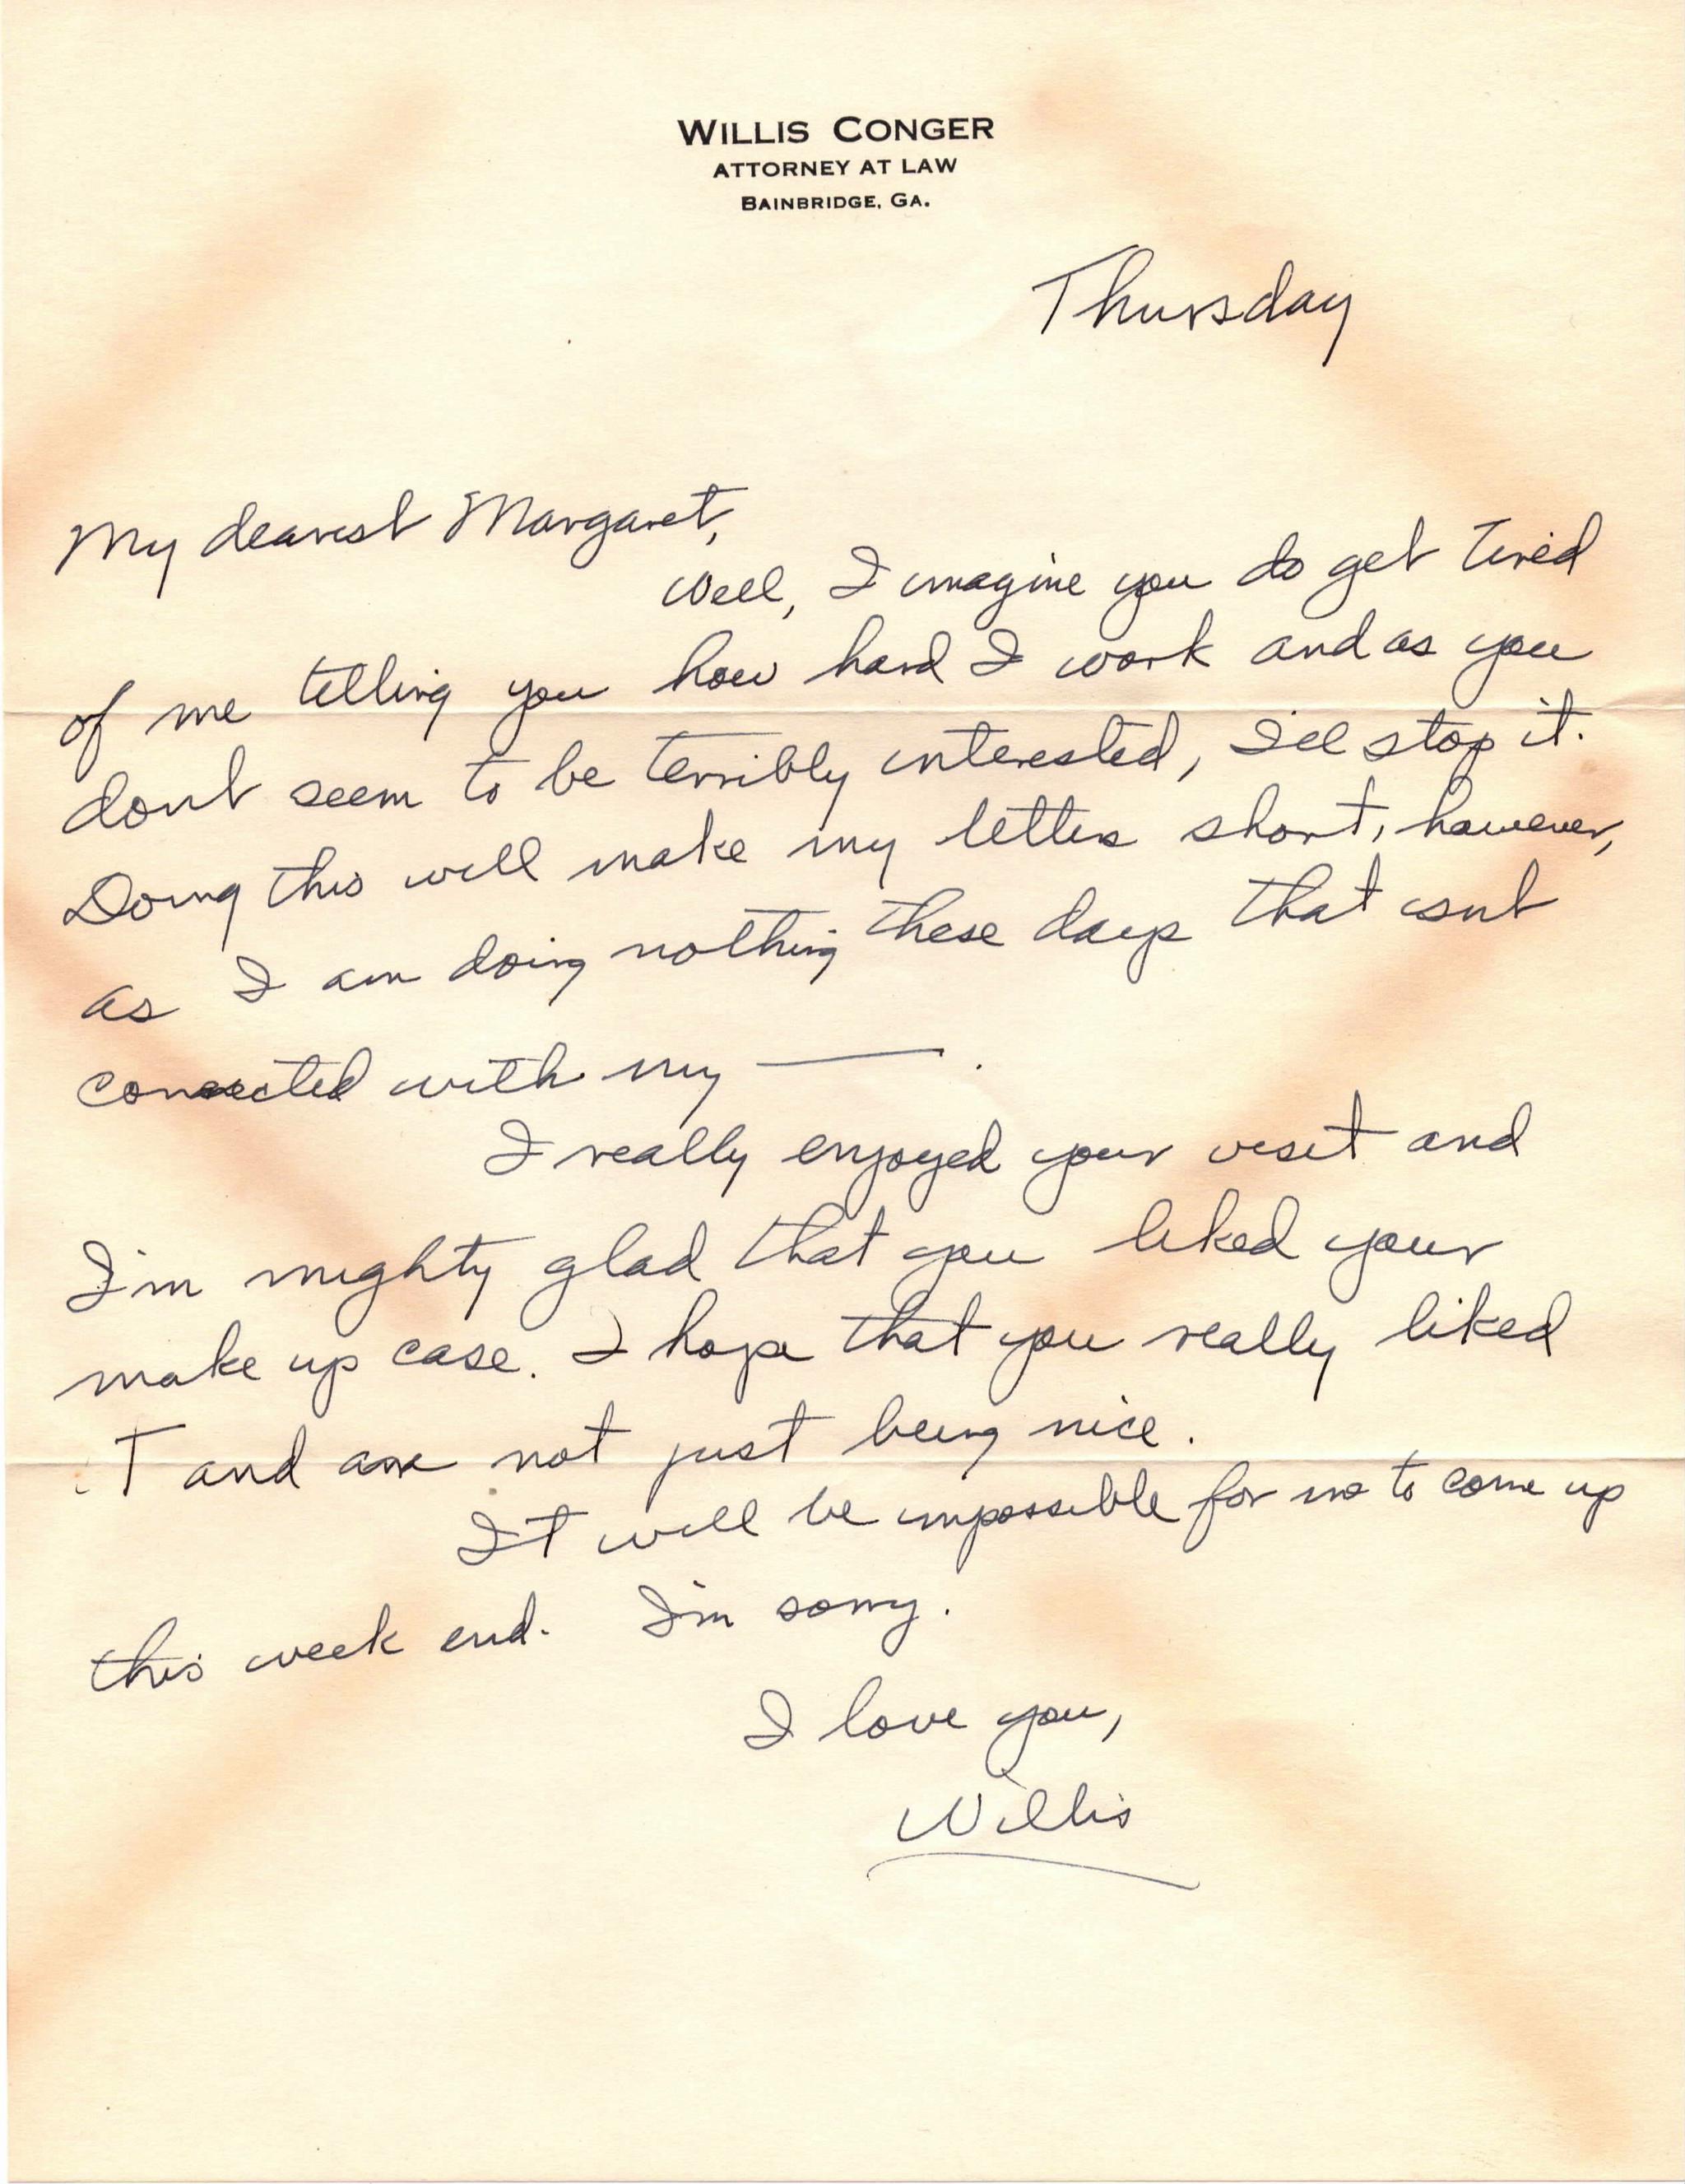 WILLIS CONGER
ATTORNEY AT LAW
BAINBRIDGE, GA.
Thursday
My dearest Margaret,
Well, I imagine you do get tired
of me telling you how hard I work and as you
dont seem to be terribly interested, I'll stop it.
Doing this will make my letters short, however,
as I am doing nothing these days that isnt
connected with my ———.
I really enjoyed your visit and
I'm mighty glad that you liked your
make up case. I hope that you really liked
IT and are not just being nice.
It will be impossible for me to come up
this week end. I'm sorry.
I love you,
Willis